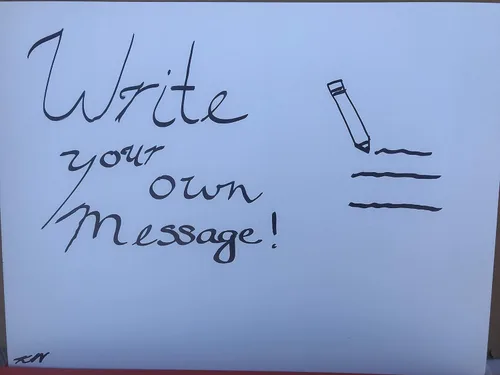 Write
your
own
Message!